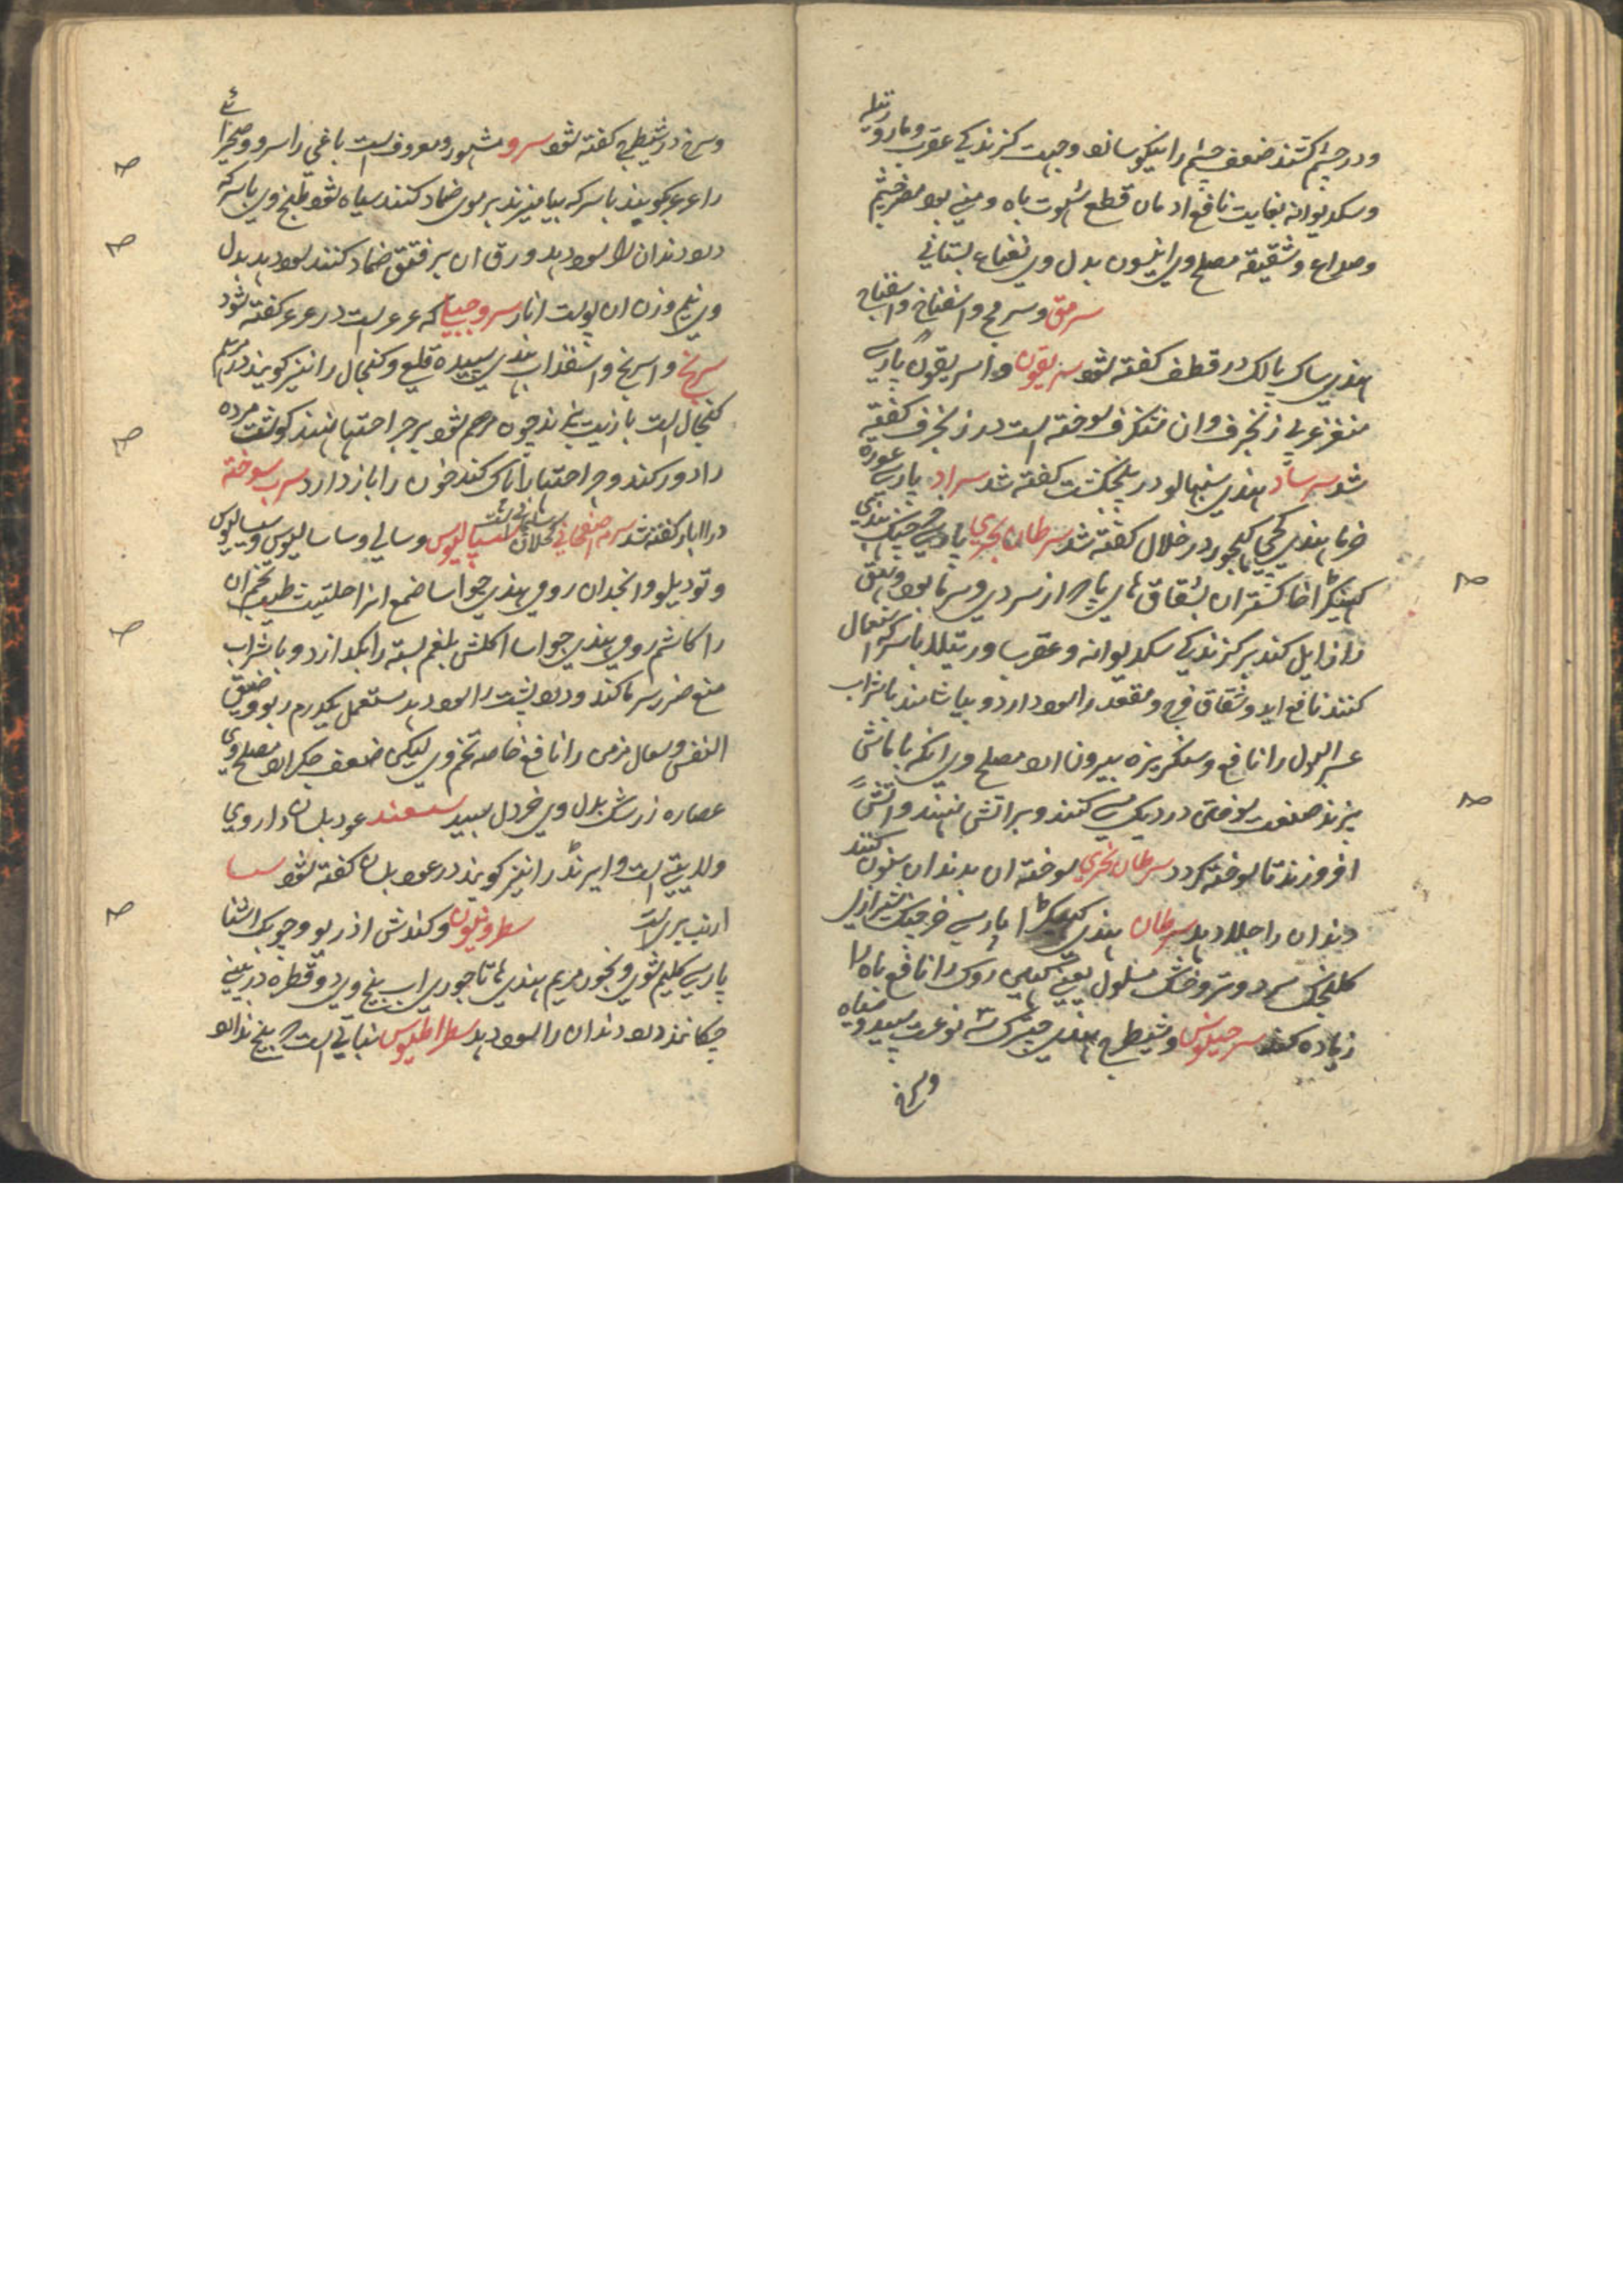 ودر چشم کشند ضعف چشم را نیکو سازد وجهت گزندگی عقرب ومار ورتیله
وسک دیوانه بغایت نافع ادمان قطع شهوت باه ومنی بود مضر چشم
وصداع وشقیقه مصلح وی انیسون بدل وی نعناع بستانی
سرمق وسرمج واسفناخ واسفناج
هندی ساک پالک در قطف گفته شود سریقون واسریقون پارسی
عربی زنجرف وان شنگرف سوخته است در زنجرف گفته
شد سرساد هندی سنبهالو در پنجنگشت گفته شد سراد پارسی غوره
خرما هندی کچی کهجور در خلال گفته شد سرطان بحری پارسی خرچنگ هندی
کینکرا خاکستر ان شقاق های پا که از سردی وسرما بود وبهق
را زایل کند بر گزندگی سک دیوانه وعقرب ورتیلا با سرکه استعمال
کنند نافع اید وشقاق فرج ومقعد را سود دارد وبیاشامند با شراب
عسر البول را نافع وسنگریزه بیرون ارد مصلح وی انکه با ماش
بپزند صنعت سوختن در دیک مسی کنند وبر اتش نهند واتش
افروزند تا سوخته گردد سرطان نهری سوخته ان بدندان سنون کنند
دندان را جلا دهد سرطان هندی کیکرا پارسی خرچنگ شیرازی
کلنجک سرد وتر وخاک مسلول یعنی کهئی روک را نافع باه را
زیاده کند سرحیلوس وشیطرج هندی چترک سه نوعست سپید وسیاه
وسرخ
وسرخ در شیطرج گفته شود سرو مشهور ومعروف است باغی را سرو وصحرائی
را عرعر گویند با سرکه بیامیزند بر موی ضماد کنند سیاه شود طبخ وی با سرکه
درد دندان را سود دهد ورق ان بر فتق ضماد کنند سود دهد بدل
وی نیم وزن ان پوست انار سرو جبیا که عرعر است در عرعر گفته شود
سرنج واسرنج واسفیداب هندی سپیده قلعی وکنجال را نیز گویند مرهم
کنجال است با زیت بپزند چون مرهم شود بر جراحتها نهند گوشت مرده
را دور کند وجراحتها را پاک کند خون را باز دارد سرب سوخته
در ابار گفته شد سرمه صفاهانی کحلان سیسالیوس وسالی وساسالیوس وسیسالیوس
وتودیلو وانجدان رومی هندی جواسا صمغ انرا حلتیت طیب تخم ان
را کاشم رومی هندی جواسا اکلش بلغم بسته را بگدازد وبا شراب
منع ضرر سرما کند ودرد پشت را سود دهد مستعمل یکدرم ربو وضیق
النفس وسعال مزمن را نافع خاصه تخم وی لیکن ضعف جگر ارد مصلح وی
عصاره زرشک بدل وی خردل سپید سعند عود بلسان داروی
ولایتی است وایرند را نیز گویند در عود بلسان گفته شود سسا
ارنب بری است سطرونیون وکندش اذربو وچوبک اشنا
پارسی گلیم شوی وبخور مریم هندی هاتاجوری اب بیخ وی دو قطره در بینی
چکانند درد دندان را سود دهد سطراطیوس نباتی است که بیخ ندارد